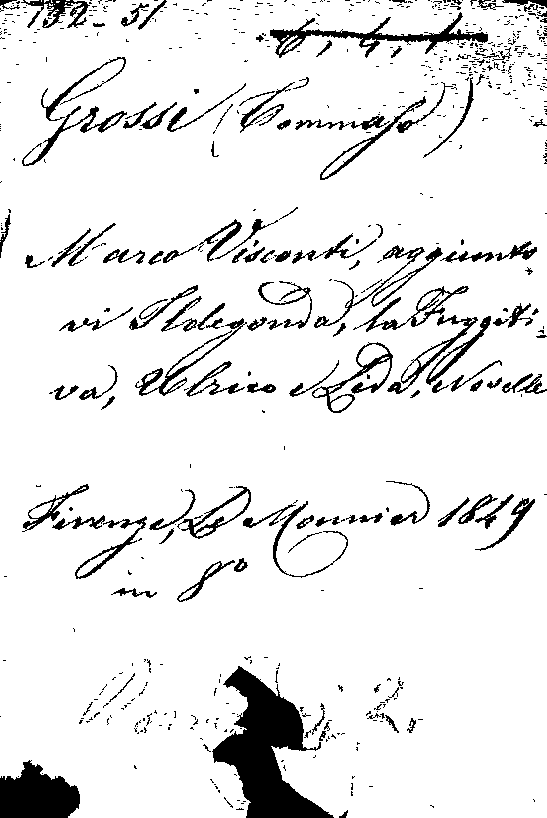 132-51
6, 4, 1
Grossi (Tommaso)
Marco Visconti, aggiunto
vi Ildegonda, la Fuggiti-
va, Ulrico e Lida, Novelle
Firenze, Le Monnier 1849
in 8°